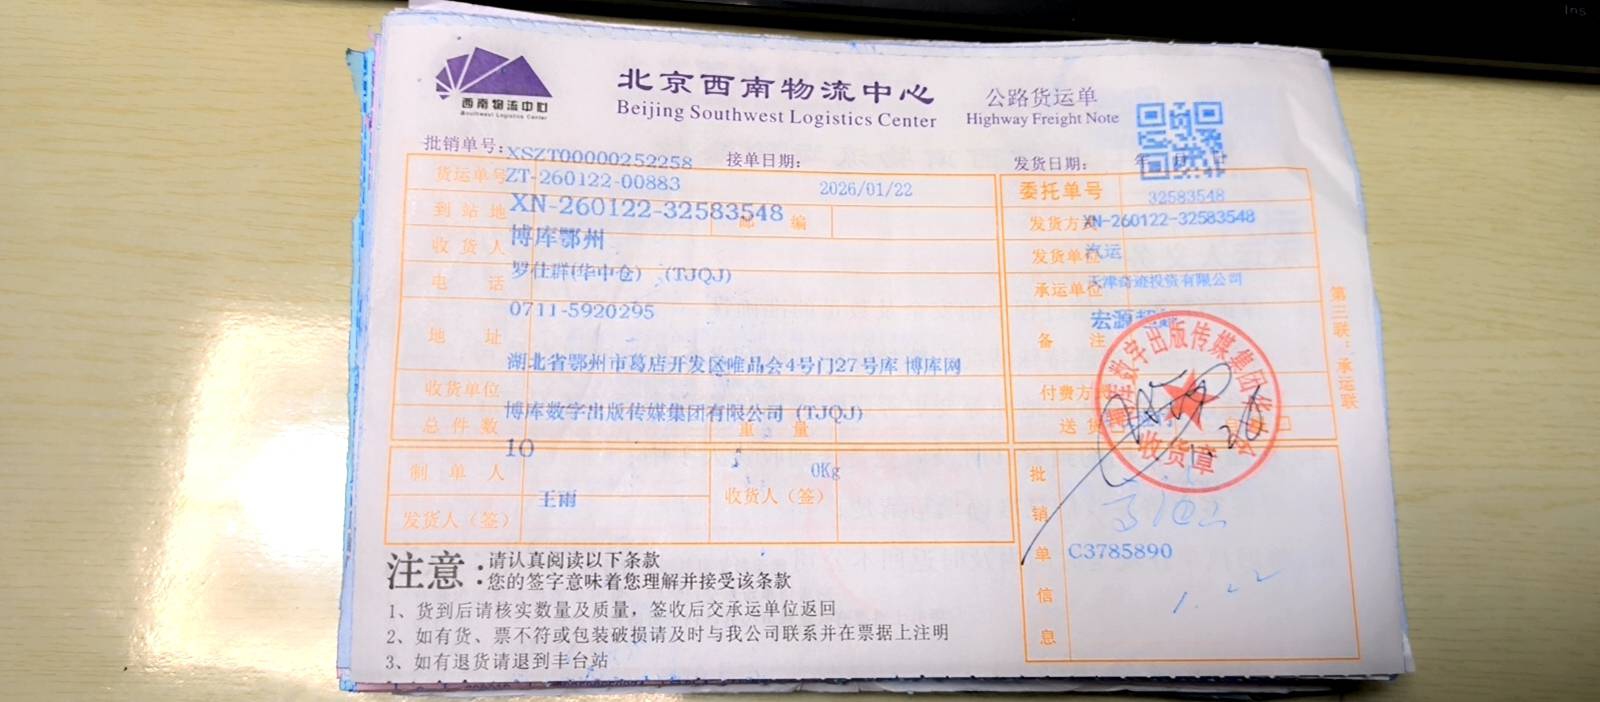 Ins
西南物流中心
Southwest Logistics Center
北京西南物流中心
Beijing Southwest Logistics Center
公路货运单
Highway Freight Note
批销单号: XSZT00000252258 接单日期: 发货日期: 年 月 日
货运单号 ZT-260122-00883 2026/01/22 委托单号 32583548
到站地 XN-260122-32583548 邮编 发货方式 XN-260122-32583548
收货人 博库鄂州 发货单位 汽运
电话 罗仕群(华中仓) (TJQJ) 承运单位 天津奇迹投资有限公司
0711-5920295 备注 宏源
地址 湖北省鄂州市葛店开发区唯品会4号门27号库 博库网
收货单位 博库数字出版传媒集团有限公司 (TJQJ) 付费方式
总件数 10 重量 0Kg 送货
制单人 王雨 收货人(签)
发货人(签)
批销单信息 C3785890
1.22
数字出版传媒集团
收货章
1.26
第三联:承运联
注意:请认真阅读以下条款
您的签字意味着您理解并接受该条款
1、货到后请核实数量及质量，签收后交承运单位返回
2、如有货、票不符或包装破损请及时与我公司联系并在票据上注明
3、如有退货请退到丰台站